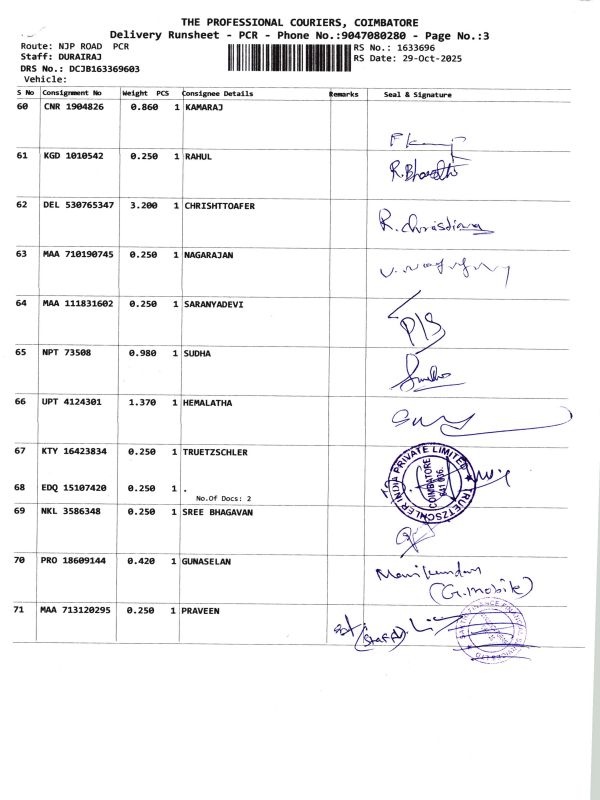 THE PROFESSIONAL COURIERS, COIMBATORE
Delivery Runsheet - PCR - Phone No.:9047080280 - Page No.:3
Route: NJP ROAD PCR
RS No.: 1633696
Staff: DURAIRAJ
RS Date: 29-Oct-2025
DRS No.: DCJB163369603
Vehicle:
S No Consignment No Weight PCS Consignee Details Remarks Seal & Signature
60 CNR 1904826 0.860 1 KAMARAJ
61 KGD 1010542 0.250 1 RAHUL
R.Bharathi
62 DEL 530765347 3.200 1 CHRISHTTOAFER
R. Chrisdiana
63 MAA 710190745 0.250 1 NAGARAJAN
64 MAA 111831602 0.250 1 SARANYADEVI
65 NPT 73508 0.980 1 SUDHA
66 UPT 4124301 1.370 1 HEMALATHA
67 KTY 16423834 0.250 1 TRUETZSCHLER
TRUETZSCHLER INDIA PRIVATE LIMITED
COIMBATORE
641 006.
68 EDQ 15107420 0.250 1 .
No.Of Docs: 2
69 NKL 3586348 0.250 1 SREE BHAGAVAN
70 PRO 18609144 0.420 1 GUNASELAN
Manikandan
(G.mobile)
71 MAA 713120295 0.250 1 PRAVEEN
(Staff)